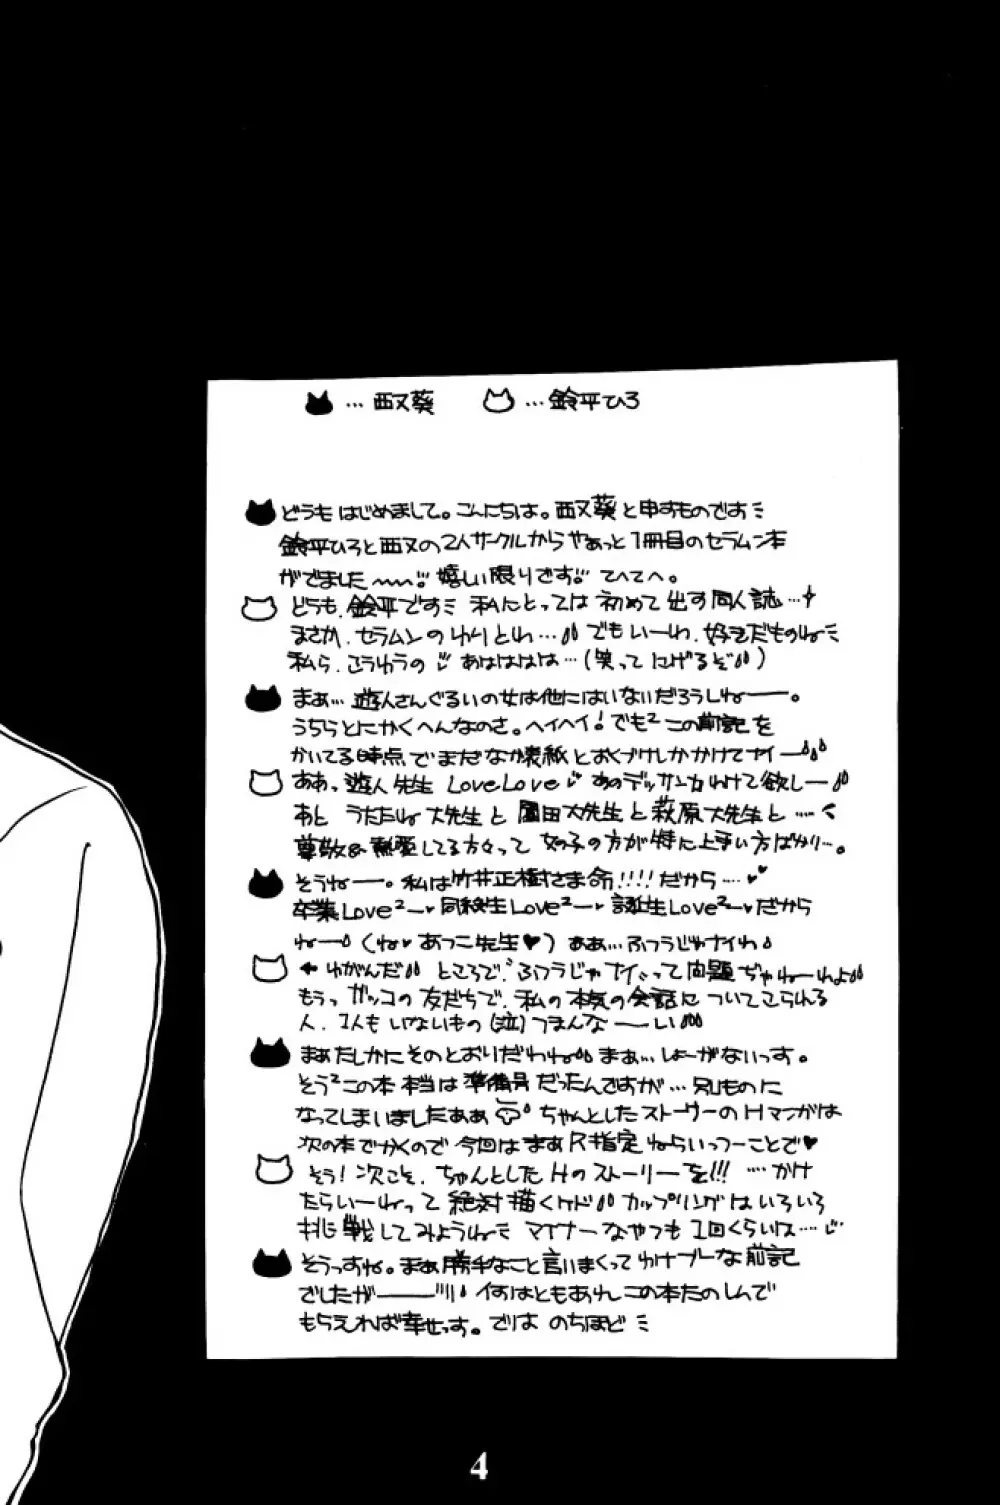 …西又葵 …鈴平ひろ
どうもはじめまして。こんにちは。西又葵と申すものです
鈴平ひろと西又の2人サークルからやぁっと1冊目のセラムン本
がでました〜〜!! 嬉しい限りです!! てへてへ。
どうも、鈴平です 私にとっては初めて出す同人誌…
まさか、セラムンのわりとわ… でもいーわ、好きだものね
私ら、こうゆうの あはははは…(笑ってにげるぞ)
まぁ… 遊人さんぐるいの女は他にはいないだろうしねー。
うちらとにかくへんなのさ。ヘイヘイ! でも²この前記を
かいてる時点でまだなか表紙とおくづけしかかけてナイー
ああっ 遊人先生 LoveLove あのデッサン力わけて欲しー
あと うたたね大先生と園田大先生と萩原大先生と……
尊敬&熱愛してる方々って 女の子の方が特に上手い方ばかり…。
そうねー。私は竹井正樹さま命!!!!だから……
卒業Love²ー 同級生Love²ー 誕生Love²ーだから
ねー (ね♥あつこ先生♥) ああ…ふつうじゃナイわ
←ゆがんだ ところで、ふつうじゃナイって 問題ぢゃねーわよ
もうっ ガッコの友だちで、私の本気の会話についてこられる
人、1人もいないもの(泣)つまんなーい
まぁたしかにそのとおりだわね まぁ…しょーがないっす。
そう²この本 本当は準備号だったんですが…別ものに
なってしまいましたああ ちゃんとしたストーリーのHマンガは
次の本でかくので 今回はまぁR指定ねらいっつーことで♥
そう!次こそ、ちゃんとしたHのストーリーを!!! ……かけ
たらいーねって 絶対描くケド カップリングはいろいろ
挑戦してみようね マイナーなやつも1回くらいは……
そうっすね。まぁ勝手なこと言いまくってわけブーな前記
でしたがー 何はともあれ この本たのしんで
もらえれば幸せっす。では のちほど
4